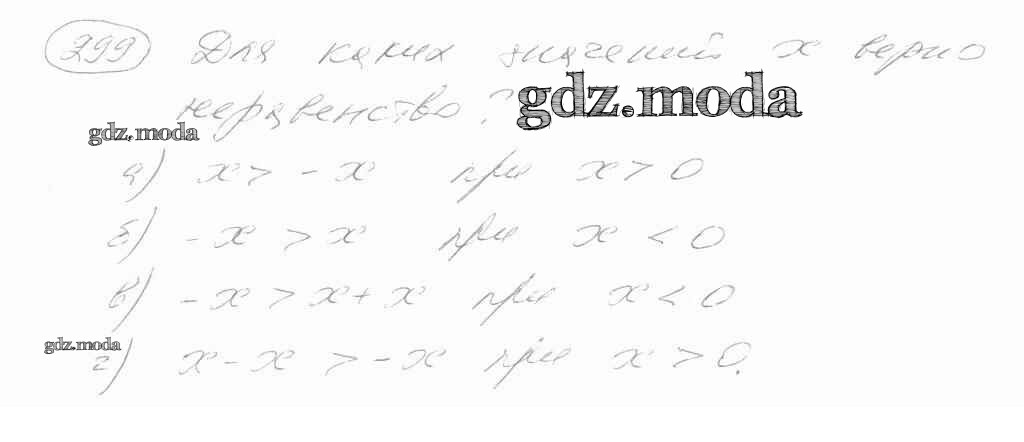 299 Для каких значений x верно
неравенство?
gdz.moda
gdz.moda
а) x > - x при x > 0
б) - x > x при x < 0
в) - x > x + x при x < 0
gdz.moda
г) x - x > - x при x > 0.